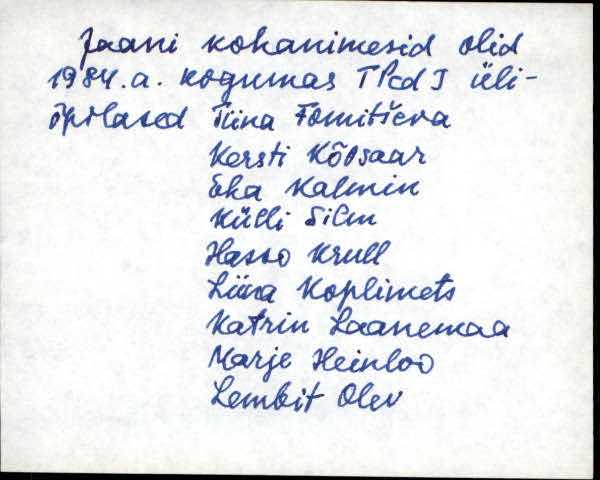 Jaani kohanimesid olid
1984.a. kogumas TPedI üli-
õpilased Tiina Fomitševa
Kersti Kõosaar
Eha Kalmin
Külli Silm
Hasso Krull
Liina Koplimets
Katrin Laanemaa
Marje Heinloo
Lembit Olev